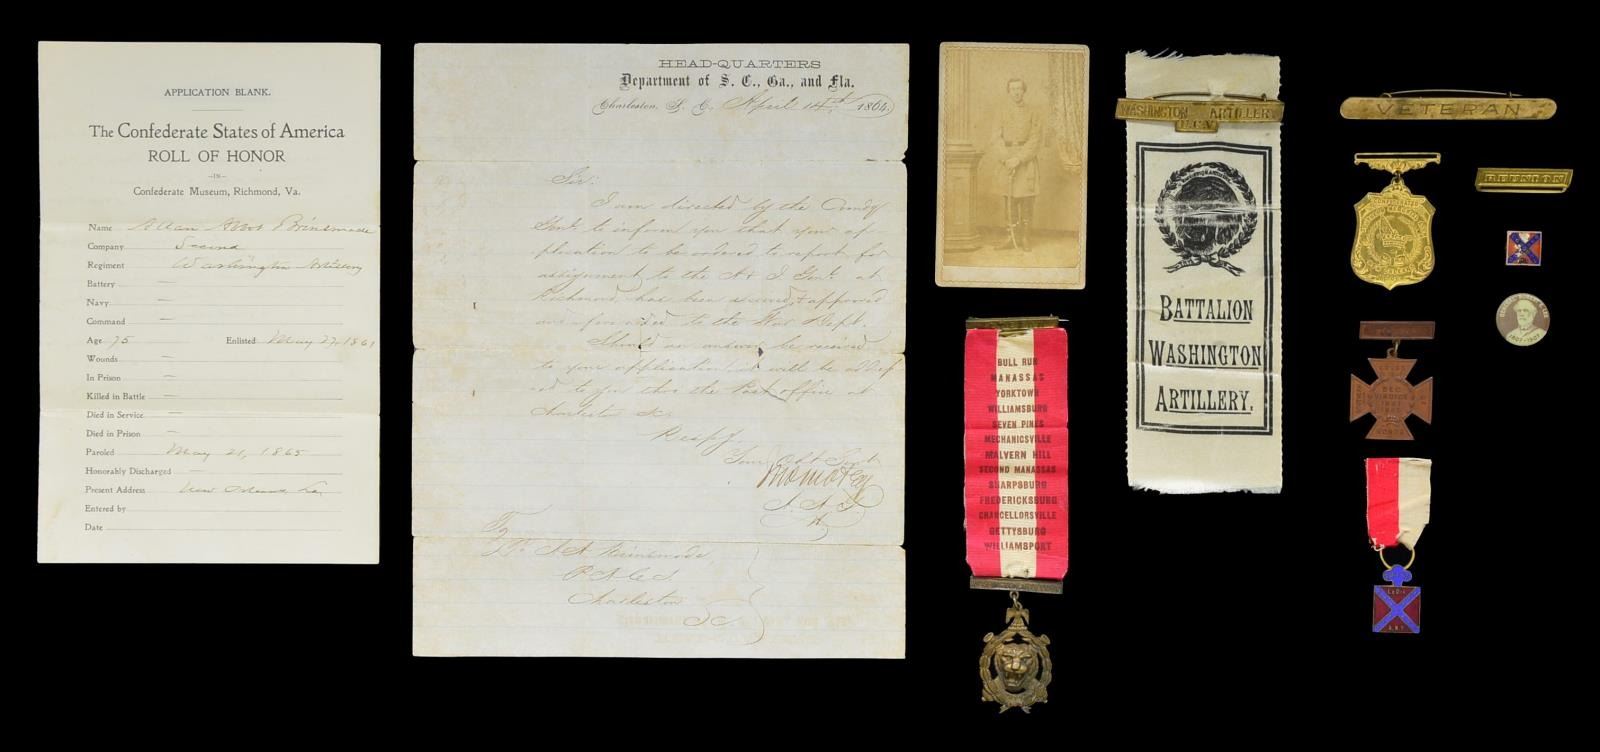 APPLICATION BLANK.
The Confederate States of America
ROLL OF HONOR
—IN—
Confederate Museum, Richmond, Va.
Name Brinsmade
Company Second
Regiment Washington Artillery
Battery —
Navy —
Command —
Age 75 Enlisted May 27, 1861
Wounds —
In Prison —
Killed in Battle —
Died in Service —
Died in Prison —
Paroled May 21, 1865
Honorably Discharged —
Present Address New Orleans, La.
Entered by
Date
HEAD-QUARTERS
Department of S. C., Ga., and Fla.
Charleston, S. C., April 14th, 1864.
Sir:
I am directed by the Comdg
Genl. to inform you that your ap-
plication to be ordered to report for
assignment to the A & I Genl. at
Richmond, has been received & approved
and forwarded to the War Dept.
Should an answer be received
to your application, it will be
to you thro the Post office at
Charleston S.C.
Respy.
Your Obt Servt
To
A. Brinsmade,
Charleston
S.C.
BULL RUN
MANASSAS
YORKTOWN
WILLIAMSBURG
SEVEN PINES
MECHANICSVILLE
MALVERN HILL
SECOND MANASSAS
SHARPSBURG
FREDERICKSBURG
CHANCELLORSVILLE
GETTYSBURG
WILLIAMSPORT
WASHINGTON ARTILLERY
BATTALION
WASHINGTON
ARTILLERY.
VETERAN
REUNION
CONFEDERATED
1807-1907
DEO
VINDICE